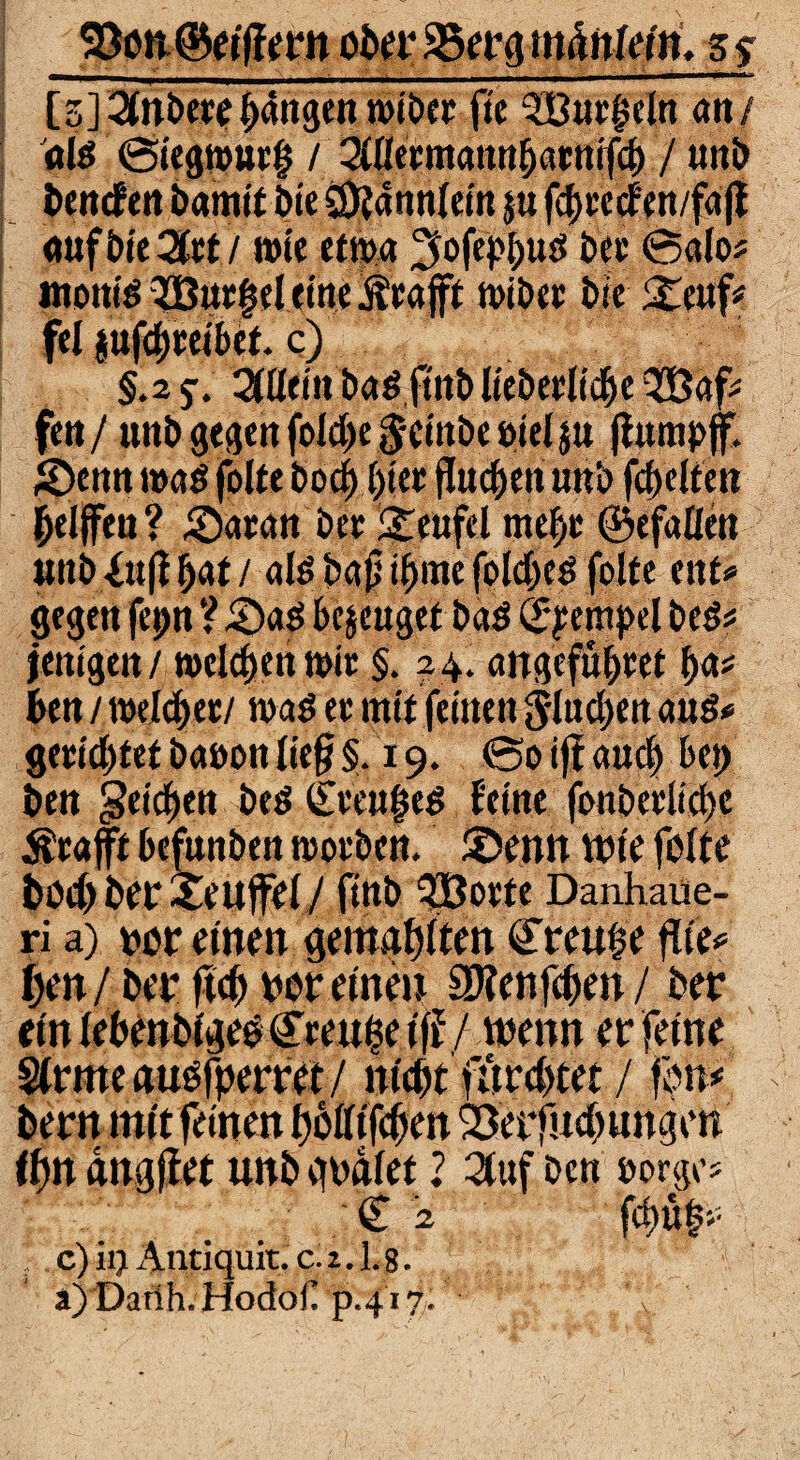 Von Geistern oder Bergmånlein. 35
[3] Andere hången wider sie Wurtzeln an/
als Siegwurtz / Allermannharnisch / und
dencken damit die Månnlein zu schrecken/fast
auf die Art / wie etwa Josephus der Salo-
monis Wurtzel eine Krafft wider die Teuf-
fel zuschreibet. c)
§.25. Allein das sind liederliche Waf-
fen / und gegen solche Feinde viel zu stumpff.
Denn was solte doch hier fluchen und schelten
helffen? Daran der Teufel mehr Gefallen
und Lust hat / als daß ihme solches solte ent-
gegen seyn? Das bezeuget das Exempel des-
jenigen / welchen wir §. 24. angeführet ha-
ben / welcher/ was er mit seinen Fluchen aus-
gerichtet davon ließ §. 19. So ist auch bey
den Zeichen des Creutzes keine sonderliche
Krafft befunden worden. Denn wie solte
doch der Teuffel / sind Worte Danhaue-
ri a) vor einen gemahlten Creutze flie-
hen / der sich vor einen Menschen / der
ein lebendiges Creutze ist / wenn er seine
Arme aussperret / nicht fürchtet / son-
dern mit seinen höllischen Versuchungen
ihn ångstet und qvålet? Auf den vorge-
C 2 schütz-
c) in Antiquit. c.2.l.8.
a) Danh. Hodos. p.417.